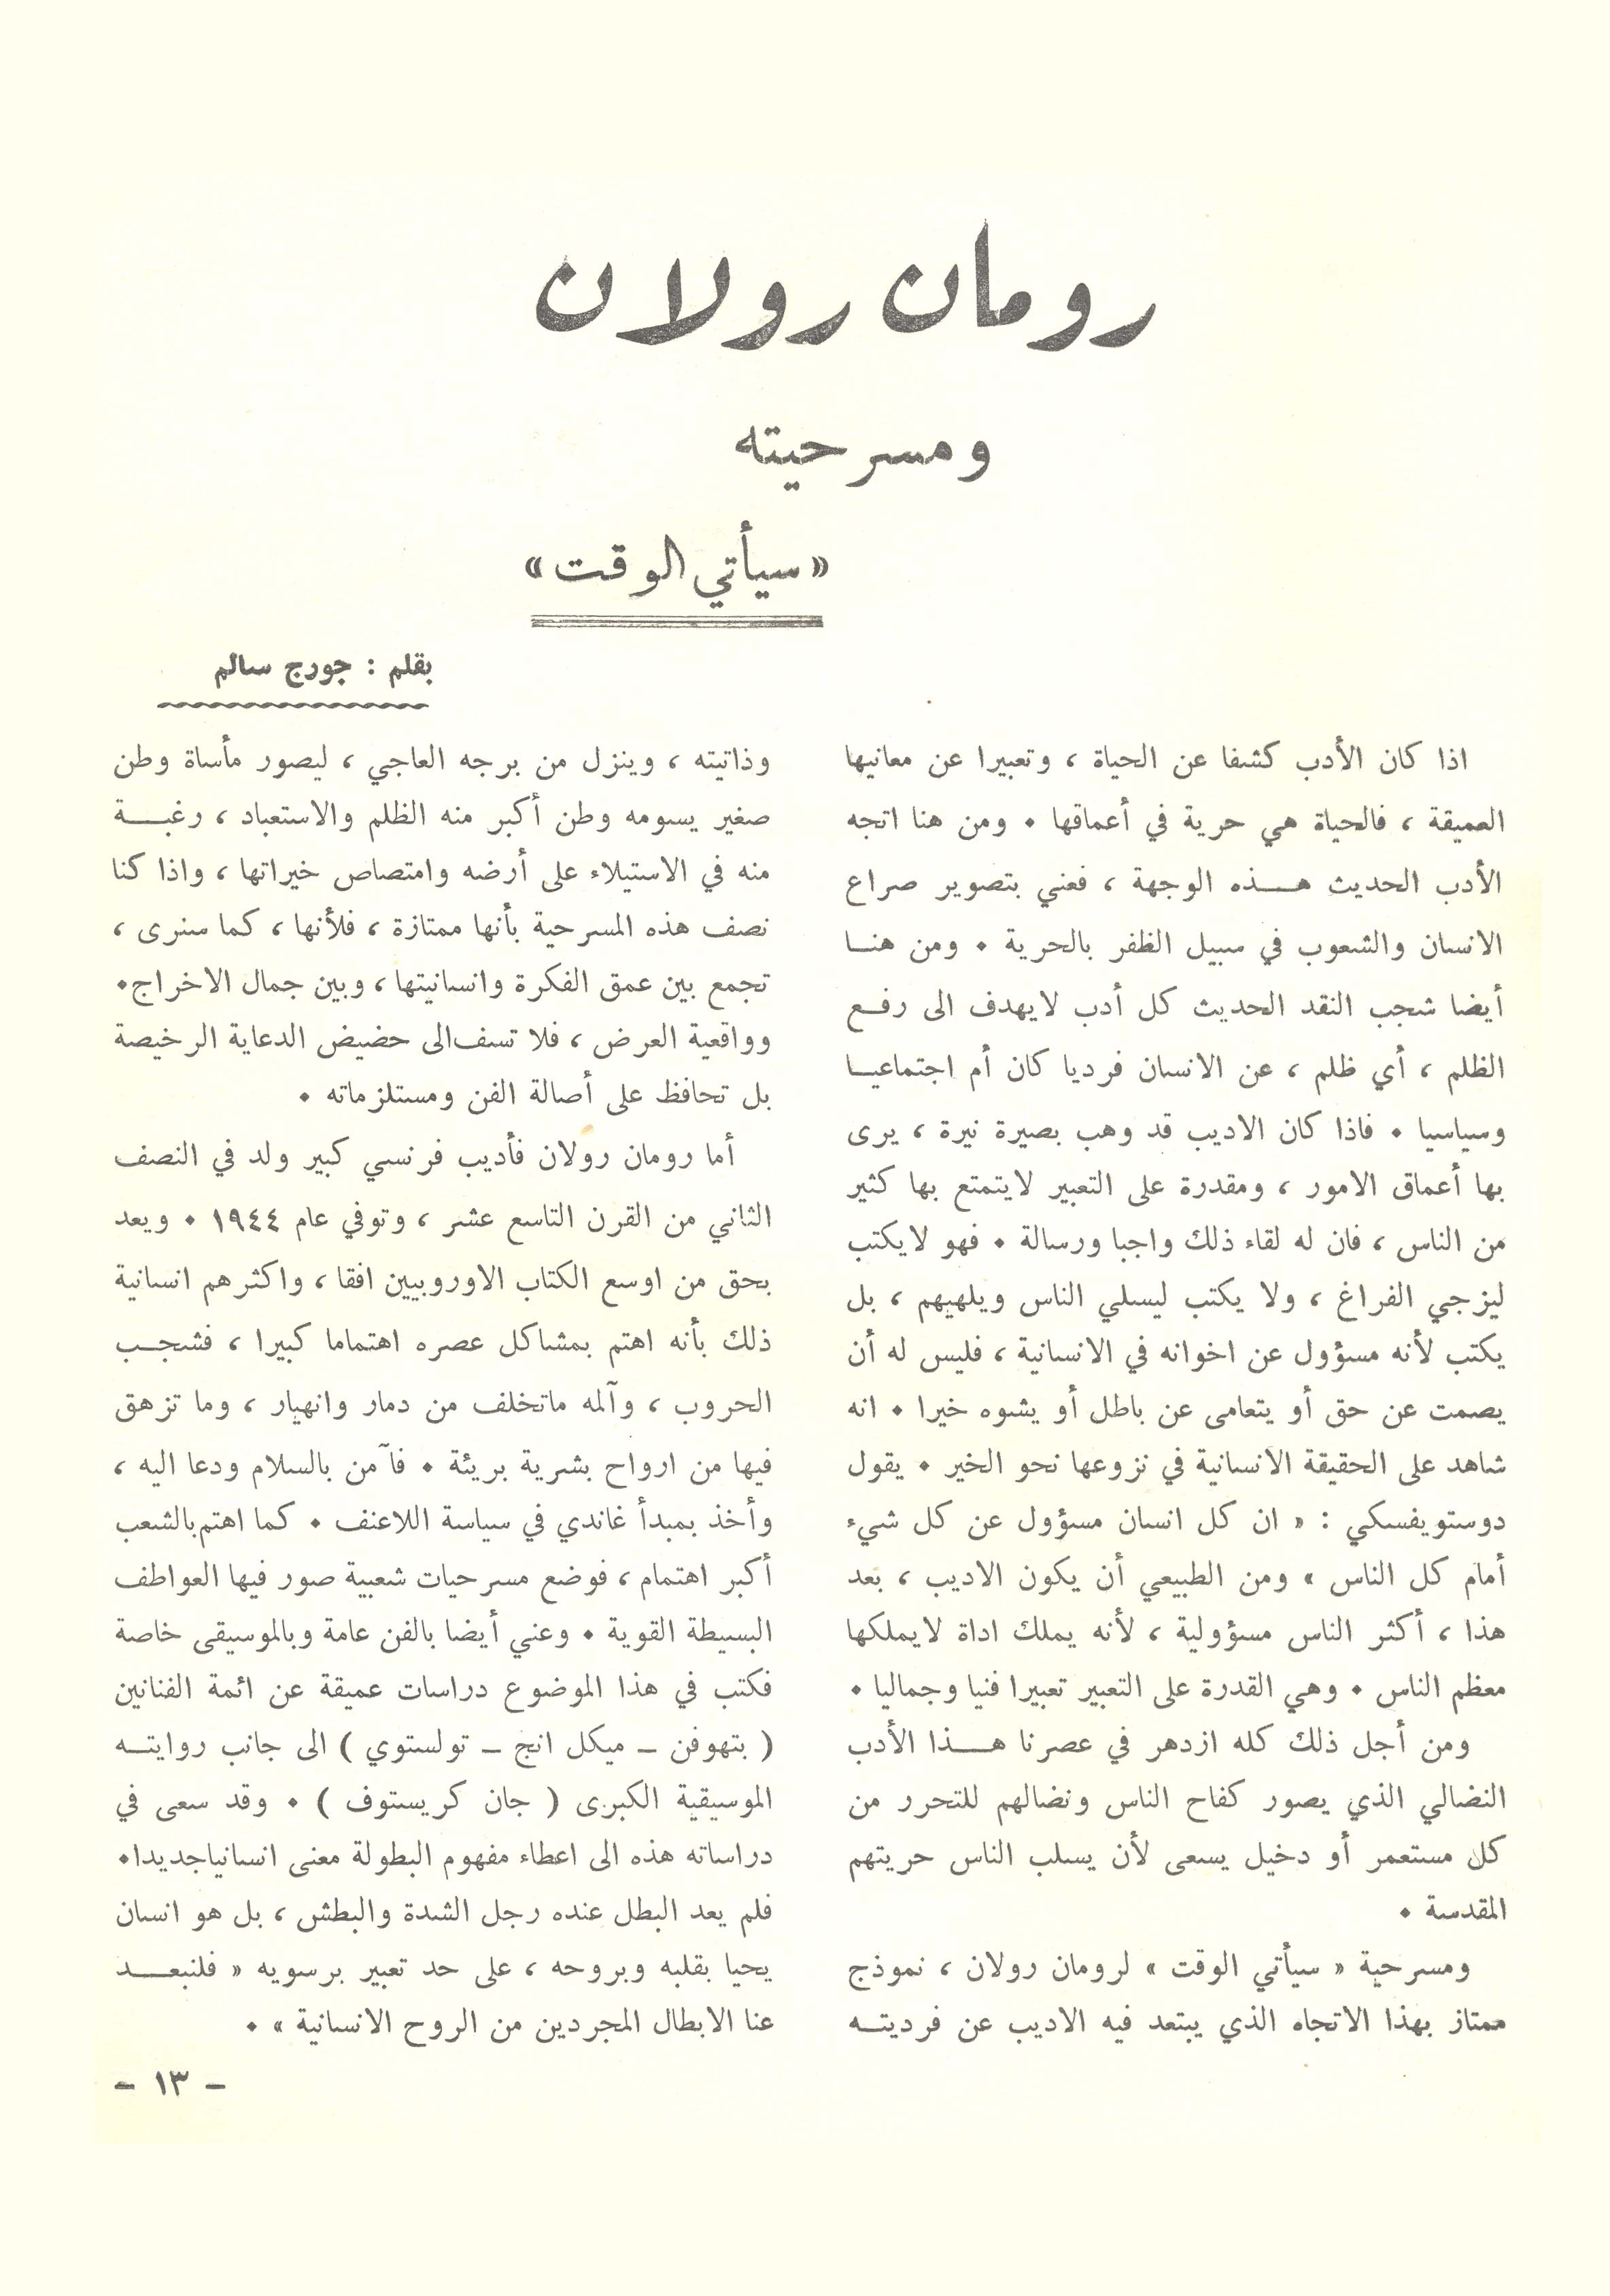 رومان رولان
ومسرحيته
«سيأتي الوقت»
بقلم : جورج سالم
اذا كان الأدب كشفا عن الحياة ، وتعبيرا عن معانيها
العميقة ، فالحياة هي حرية في أعماقها ٠ ومن هنا اتجه
الأدب الحديث هـــذه الوجهة ، فعني بتصوير صراع
الانسان والشعوب في سبيل الظفر بالحرية ٠ ومن هنـا
أيضا شجب النقد الحديث كل أدب لايهدف الى رفـع
الظلم ، أي ظلم ، عن الانسان فرديا كان أم اجتماعيـا
وسياسيا ٠ فاذا كان الاديب قد وهب بصيرة نيرة ، يرى
بها أعماق الامور ، ومقدرة على التعبير لايتمتع بها كثير
من الناس ، فان له لقاء ذلك واجبا ورسالة ٠ فهو لايكتب
ليزجي الفراغ ، ولا يكتب ليسلي الناس ويلهيهم ، بل
يكتب لأنه مسؤول عن اخوانه في الانسانية ، فليس له أن
يصمت عن حق أو يتعامى عن باطل أو يشوه خيرا ٠ انه
شاهد على الحقيقة الانسانية في نزوعها نحو الخير ٠ يقول
دوستويفسكي : « ان كل انسان مسؤول عن كل شيء
أمام كل الناس » ومن الطبيعي أن يكون الاديب ، بعد
هذا ، أكثر الناس مسؤولية ، لأنه يملك اداة لايملكها
معظم الناس ٠ وهي القدرة على التعبير تعبيرا فنيا وجماليا ٠
ومن أجل ذلك كله ازدهر في عصرنا هـــذا الأدب
النضالي الذي يصور كفاح الناس ونضالهم للتحرر من
كل مستعمر أو دخيل يسعى لأن يسلب الناس حريتهم
المقدسة ٠
ومسرحية « سيأتي الوقت » لرومان رولان ، نموذج
ممتاز بهذا الاتجاه الذي يبتعد فيه الاديب عن فرديتـه
وذاتيته ، وينزل من برجه العاجي ، ليصور مأساة وطن
صغير يسومه وطن أكبر منه الظلم والاستعباد ، رغبـــة
منه في الاستيلاء على أرضه وامتصاص خيراتها ، واذا كنا
نصف هذه المسرحية بأنها ممتازة ، فلأنها ، كما سنرى ،
تجمع بين عمق الفكرة وانسانيتها ، وبين جمال الاخراج٠
وواقعية العرض ، فلا تسف الى حضيض الدعاية الرخيصة
بل تحافظ على أصالة الفن ومستلزماته ٠
أما رومان رولان فأديب فرنسي كبير ولد في النصف
الثاني من القرن التاسع عشر ، وتوفي عام ١٩٤٤ ٠ ويعد
بحق من اوسع الكتاب الاوروبيين افقا ، واكثرهم انسانية
ذلك بأنه اهتم بمشاكل عصره اهتماما كبيرا ، فشجـب
الحروب ، وآلمه ماتخلف من دمار وانهيار ، وما تزهق
فيها من ارواح بشرية بريئة ٠ فآمن بالسلام ودعا اليه ،
وأخذ بمبدأ غاندي في سياسة اللاعنف ٠ كما اهتم بالشعب
أكبر اهتمام ، فوضع مسرحيات شعبية صور فيها العواطف
البسيطة القوية ٠ وعني أيضا بالفن عامة وبالموسيقى خاصة
فكتب في هذا الموضوع دراسات عميقة عن ائمة الفنانين
( بتهوفن – ميكل انج – تولستوي ) الى جانب روايتـه
الموسيقية الكبرى ( جان كريستوف ) ٠ وقد سعى في
دراساته هذه الى اعطاء مفهوم البطولة معنى انسانياجديدا٠
فلم يعد البطل عنده رجل الشدة والبطش ، بل هو انسان
يحيا بقلبه وبروحه ، على حد تعبير برسويه « فلنبعـــد
عنا الابطال المجردين من الروح الانسانية » ٠
– ١٣ –